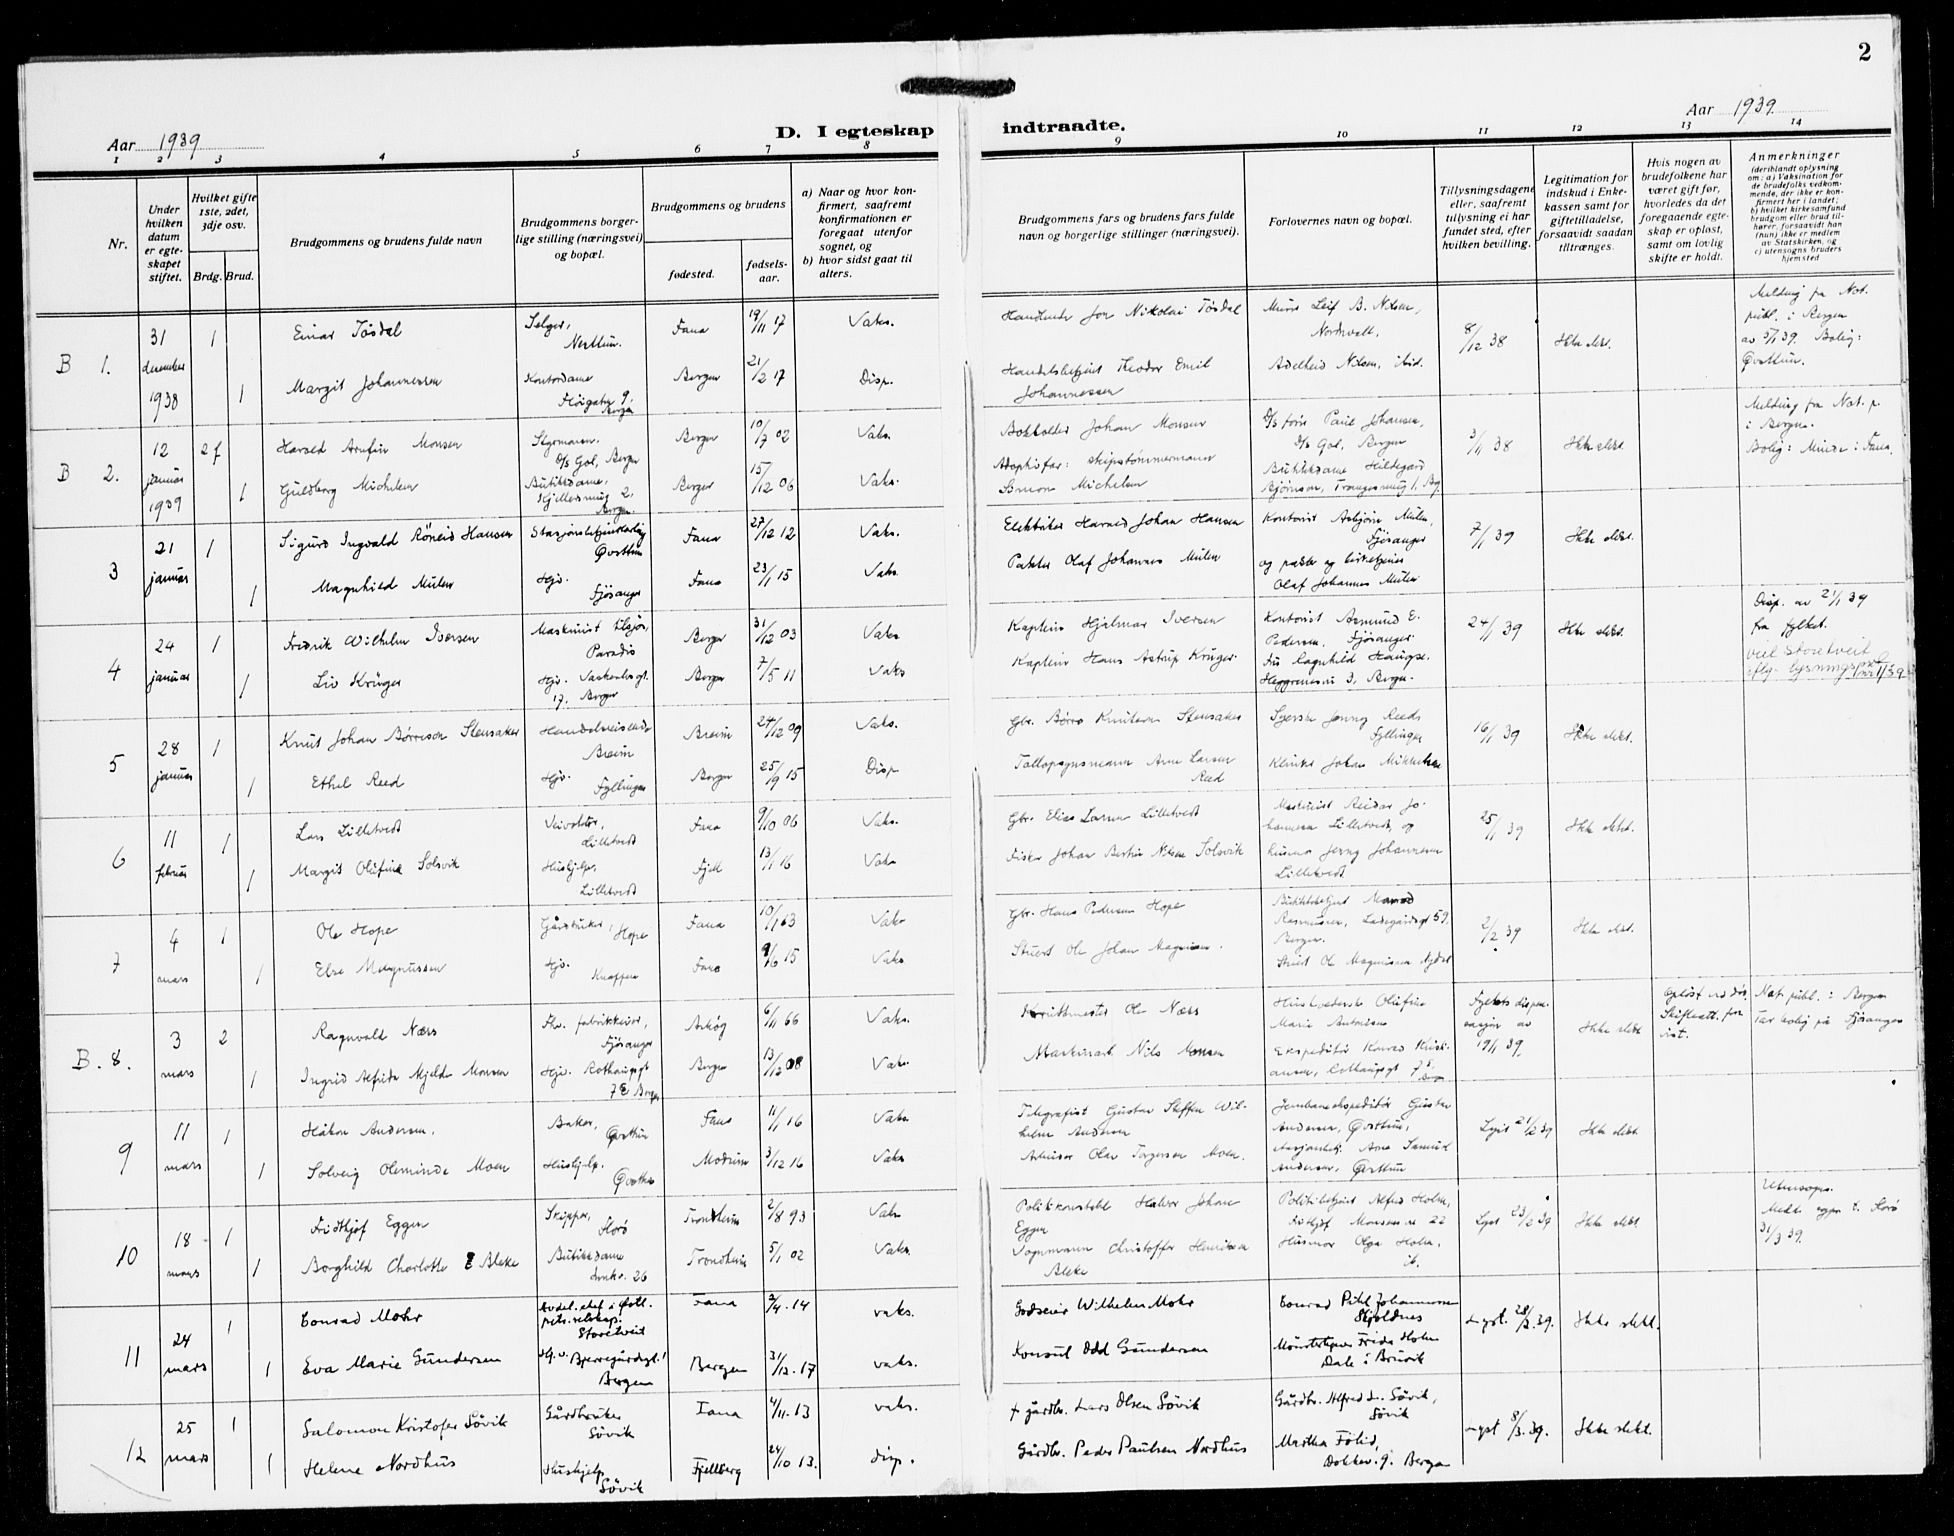 2
Aar 1939
D. I egteskap indtraadte.
Aar 1939
1 2 3 4 5 6 7 8 9 10 11 12 13 14
Nr.
Under hvilken datum er egteskapet stiftet.
Hvilket gifte 1ste, 2det, 3dje osv.
Brdg. Brud.
Brudgommens og brudens fulde navn
Brudgommens borgerlige stilling (næringsvei) og bopæl.
Brudgommens og brudens
fødested.
fødselsaar.
a) Naar og hvor konfirmert, saafremt konfirmationen er foregaat utenfor sognet, og
b) hvor sidst gaat til alters.
Brudgommens fars og brudens fars fulde navn og borgerlige stillinger (næringsvei).
Forlovernes navn og bopæl.
Tillysningsdagene eller, saafremt tillysning ei har fundet sted, efter hvilken bevilling.
Legitimation for indskud i Enkekassen samt for giftetilladelse, forsaavidt saadan tiltrænges.
Hvis nogen av brudefolkene har været gift før, hvorledes da det foregaaende egteskap er opløst, samt om lovlig skifte er holdt.
Anmerkninger
(deriblandt oplysning om: a) Vaksination for de brudefolks vedkommende, der ikke er konfirmert her i landet; b) hvilket kirkesamfund brudgom eller brud tilhører, forsaavidt han (hun) ikke er medlem av Statskirken, og c) utensogns bruders hjemsted
B 1. 31 desember 1938 1 Einar Tøsdal Selger, Nesttun. Fana 19/11 17 Vaks. Jon Nikolai Tøsdal Murer Leif B. Nilsen, Nordnvall. 8/12 38 Ikke slekt. Melding fra Not. publ. i Bergen av 5/1 39. Bolig: Øvsttun.
1 Margit Johannessen Kontordame Fløigaten 9, Bergen Bergen 21/2 17 Disp. Handelsbetjent Teodor Emil Johannessen Adelheid Nilsen, ibid.
B 2. 12 januar 1939 2 f Harald Arnfin Monsen Styrmann. D/S Gol, Bergen Bergen 10/7 02 Vaks. Bokholder Johan Monsen Paul Johansen, D/S Gol, Bergen 3/1 38 Ikke slekt. Melding fra Not. p. i Bergen. Bolig: Minde i Fana.
1 Guldborg Michelsen Butikkdame, 2, Bergen. Bergen 15/12 06 Vaks. Adoptivfar: skipstømmermann Michelsen Butikkdame Hildegard Bjørnsen, 1, Bg.
3 21 januar 1 Sigurd Ingvald Røneid Hansen Øvsttun Fana 27/12 12 Vaks. Elektriker Harald Johan Hansen Kontorist Asbjørn Mulen, Fjøsanger 7/1 39 Ikke slekt.
1 Magnhild Mulen Hjv. Fjøsanger Fana 23/1 15 Vaks. Pakker Olaf Johannes Mulen og pakker og kirketjener Olaf Johannes Mulen.
4 24 januar 1 Fredrik Wilhelm Iversen Maskinist tilsjøs, Paradis Bergen 31/12 03 Vaks Kaptein Hjalmar Iversen Kontorist Asmund E. Pedersen, Fjøsanger. 24/1 39 Ikke slekt. Disp. av 21/1 39 fra fylket. viet Storetveit iflg. lysningsprot.
1 Liv Krüger Hjv. 17, Bergen Bergen 7/5 11 Vaks Kaptein Hans Astrup Krüger. Fru Ragnhild Hauge. 3, Bergen.
5 28 januar 1 Knut Johan Børresen Stensaker Handelsreisende Breim Breim 24/12 09 Vaks. Gbr. Børre Knutsen Stensaker Syerske Jenny Reed Fyllingen 16/1 39 Ikke slekt.
1 Ethel Reed Hjv. Fyllingen Bergen 25/9 15 Disp Tollopsynsmann Arne Larsen Reed Johan Mikkelsen
6 11 februar 1 Lars Lilletvedt Veivokter, Lilletvedt Fana 9/10 06 Vaks. Gbr. Elias Larsen Lilletvedt Maskinist Reidar Johannesen Lilletvedt, og 25/1 39 Ikke slekt.
1 Margit Olufine Solsvik Hushjelp, Lilletvedt Fjell 13/1 16 Vaks Fisker Johan Bertin Nilsen Solsvik husmor Jenny Johannesen Lilletvedt
7 4 mars 1 Ole Hope Gårdbruker, Hope Fana 10/1 63 Vaks Gbr. Hans Pedersen Hope Rasmussen, Ladegårdsgt 59, Bergen. 2/2 39 Ikke slekt.
1 Else Magnussen Hjv. Knappen Fana 9/6 15 Vaks Stuert Ole Johan Magnussen. Stuert Ole Magnussen
B. 8. 3 mars 2 Ragnvald Næss Fhv. fabrikkeier, Fjøsanger Askøy 6/11 66 Vaks. Ole Næss Olufine Marie Fylkets dispensasjon av 19/1 39. Ikke slekt Opløst ved død. Skifteatt. for vist. Not. publ. i Bergen Tar bolig på Fjøsanger
1 Ingrid Alfride Mjelde Monsen Hjv. Rothaugsgt 7 E Bergen Bergen 13/12 08 Vaks. Maskinarb. Nils Monsen Ekspeditør Konrad Kristiansen, Rothaugsgt 7 E Bergen
9 11 mars 1 Håkon Andersen. Baker, Øvsttun Fana 11/1 16 Vaks Telegrafist Gustav Steffen Wilhelm Andersen Jernbaneekspeditør Gustav Andersen, Øvsttun, Lyst 21/2 39 Ikke slekt
1 Solveig Oleminde Moen Hushjelp. Øvsttun Modum 3/12 16 Vaks Arbeider Olav Torgersen Moen. Arne Samuel Andersen, Øvsttun
10 18 mars 1 Fridthjof Eggen Skipper, Florø Trondheim 2/8 93 Vaks Politikonstabel Halvor Johan Eggen Politibetjent Alfred Holm, Fridtjof 22 Lyst 23/2 39 Ikke slekt Utensogns. Medt. sogpr. t. Florø 31/3 39.
1 Borghild Charlotte E Bleke Butikkdame 26 Trondheim 5/1 02 Vaks. Vognmann Christoffer Henriksen Bleke Husmor Olga Holm, ib.
11 24 mars 1 Conrad Mohr Storetveit Fana 2/4. 14 vaks. Godseier Wilhelm Mohr Conrad Pihl Johannesen Skjoldnes Lyst. 28/2. 39. Ikke slekt.
1 Eva Marie Gundersen Bjerregårdsgt. Bergen Bergen 31/12. 17 vaks. Konsul Odd Gundersen Frida Holm Dale i Bruvik
12 25 mars 1 Salomon Kristofer Søvik Gårdbruker Søvik Fana 4/11. 13 vaks. + gårdbr. Lars Olsen Søvik Gårdbr. Alfred L. Søvik, Søvik Lyst 8/3. 39. Ikke slekt.
1 Helene Nordhus Hushjelp Søvik Fjellberg 24/10 13. disp. Gårdbr. Peder Paulsen Nordhus Martha Følid, Dokkev. 9. Bergen